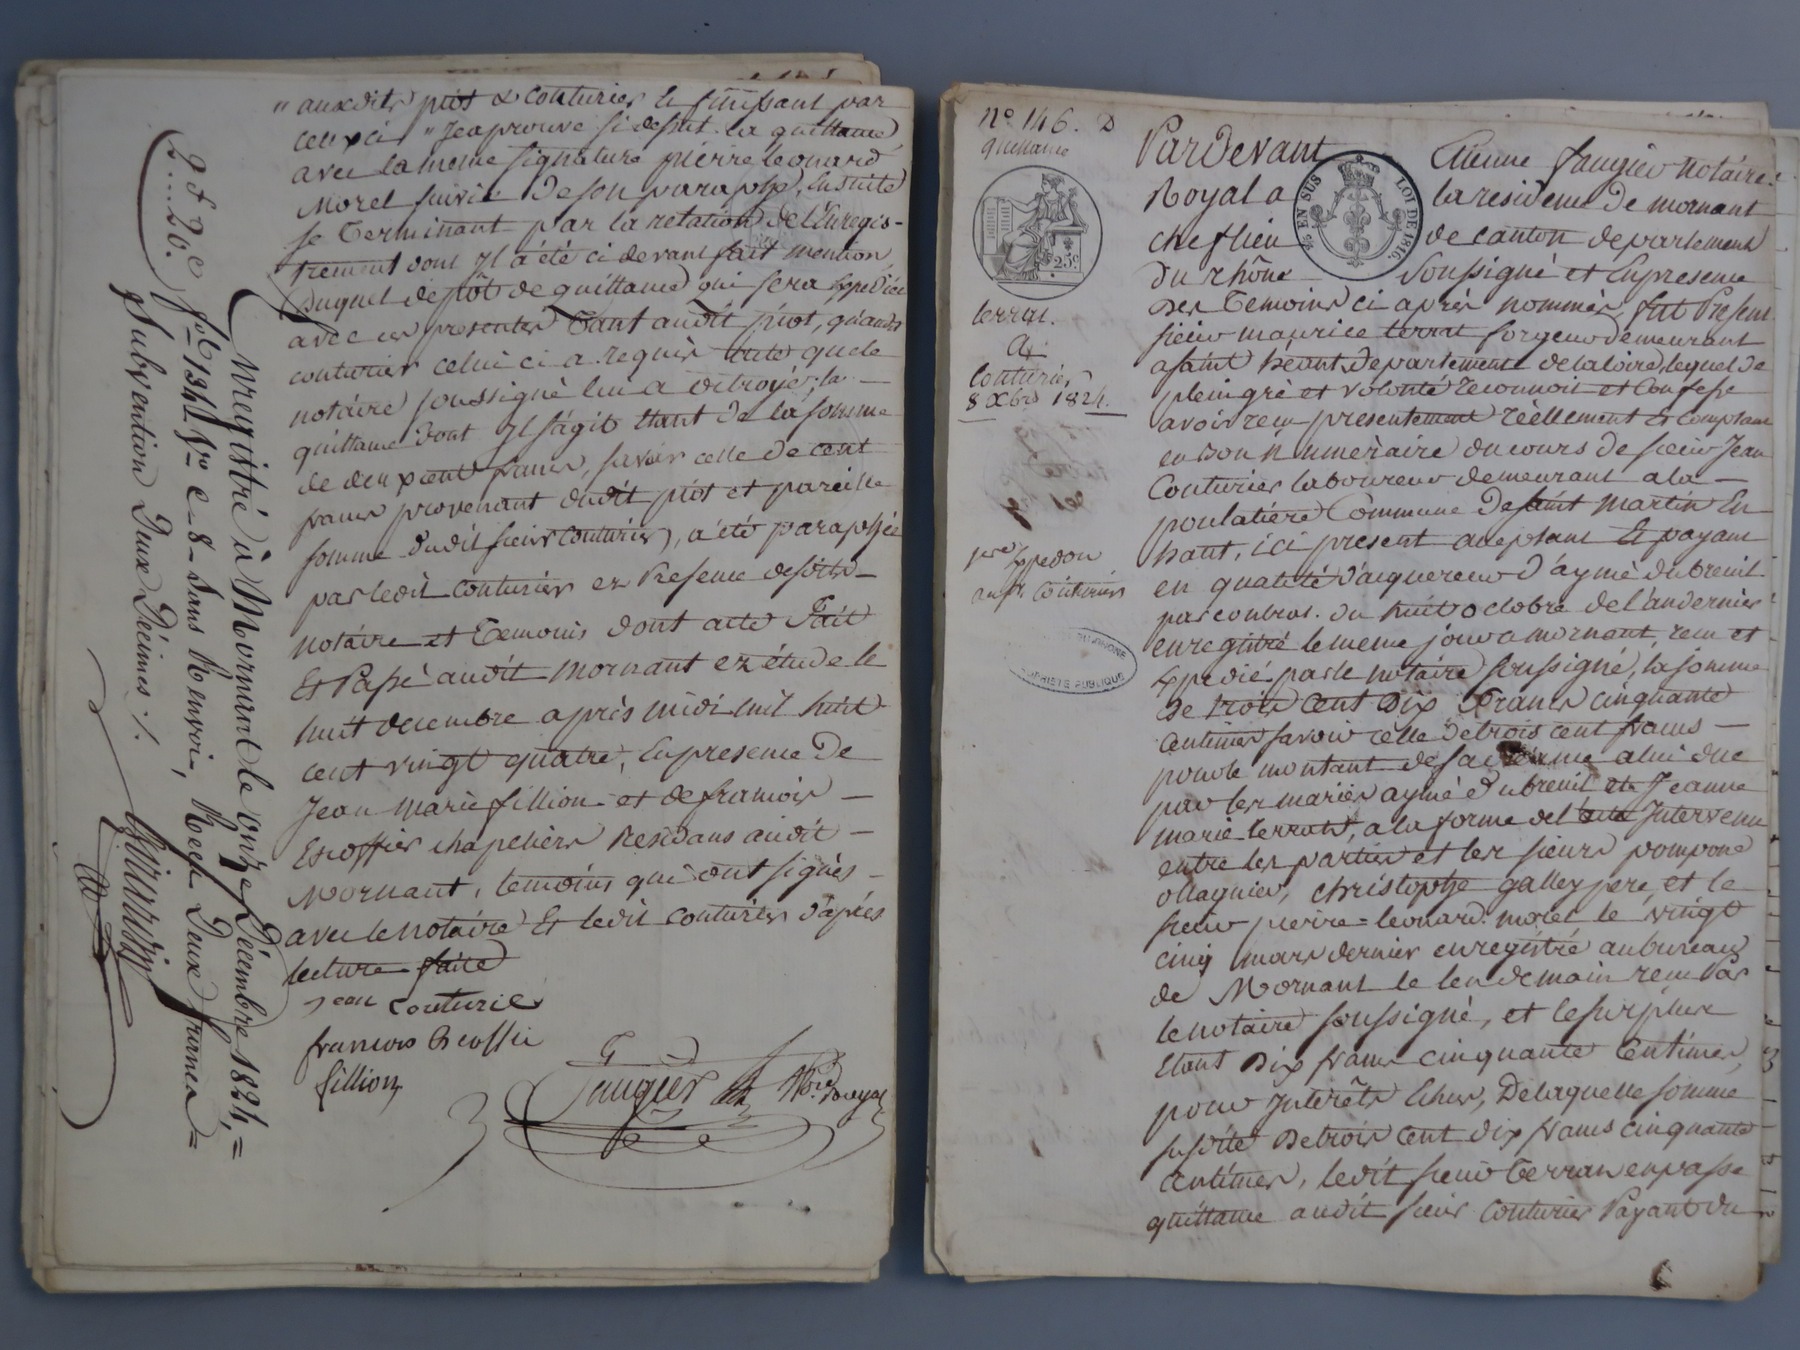 " auxdits piot & couturier & finissant par
ceux ci " Jeaprouve si desut la quittance
avec la meme signature pierre leonard
Morel suivie de son paraphe, Ensuite
se Terminant par la relation de l'Enregis-
trement dont Il a été ci devant fait mention
Duquel depôt de quittance qui sera Expediée
avec ces presentes Tant audit piot, qu'audit
couturier celui ci a requis acte que le
notáire soussigné lui a octroyé, la —
quittance dont Il s'ágit Etant de la somme
de deux cent francs, savoir celle de cent
francs provenant dudit piot et pareille
somme dudit sieur couturier, a été paraphée
par ledit couturier en Presence desdits —
notáire et Temoins dont acte Fait
Et Passé audit mornant en étude le
huit decembre après midi mil huit
cent vingt quatre, En presence de
Jean Marie fillion et de francois —
Escoffier chapeliers Residans audit —
Mornant, temoins qui ont signés —
avec le notáire Et ledit couturier d'après
lecture faite
Jean couturier
francois Escoffier
fillion
Faugier Nre. Royal
Enregistré à Mornant le onze Décembre 1824, =
fol 134 Vo C. 8 - sans Renvoi, Reçu Deux francs =
Subvention Deux Décimes ./.
2 f 20 c
2.... 20.
No 146. D
quittance
25c
terrat.
A
Couturier
8 Xbre 1824.
1ere Expedon
au Sr. Couturier
DU RHONE
PROPRIETE PUBLIQUE
EN SUS
LOI DE 1816.
Par Devant Etienne faugier notáire
Royal a la residence de mornant
chef lieu de canton departement
du rhône soussigné et En presence
Des Temoins ci après nommés, fut Present
sieur maurice terrat forgeur demeurant
a saint héant, departement de la loire, lequel de
plein gré et volonté reconnoit et Confesse
avoir reçu presentement réellement et comptant
en bon numéraire du cours de sieur Jean
Couturier laboureur demeurant a la —
poulatière Commune de saint Martin En
haut, ici present acceptant Et payant
en qualité d'acquereur d'aymé dubreuil
par contrat du huit octobre de l'an dernier
enregistré le meme jour a mornant, reçu et
Expedié par le notáire soussigné, la somme
de trois Cent Dix Francs cinquante
Centimes savoir celle de trois cent francs —
pour le montant de sa créance a lui due
par les mariés aymé dubreuil et Jeanne
marie terrat, a la forme de l'acte Intervenu
entre les parties et les sieurs pompone
ollagnier, christophe galley pere, et le
sieur pierre = leonard morel le vingt
cinq mars dernier enregistré au bureau
de Mornant le lendemain reçu par
le notáire soussigné, et le surplus
Etant Dix francs cinquante Centimes,
pour Interêts Echus, De laquelle somme
susdite De trois Cent Dix francs cinquante
Centimes, ledit sieur Terrat en passe
quittance audit sieur Couturier Payant du